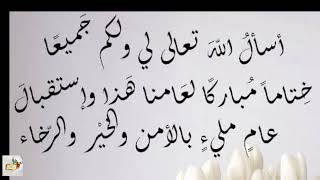 أسألُ اللَّهَ تعالى لي ولكم جَميعًا
خِتاماً مُباركًا لعَامنا هَذا وإستقبالَ
عامٍ مليءٍ بالأمن والخَيْر والرَّخاء